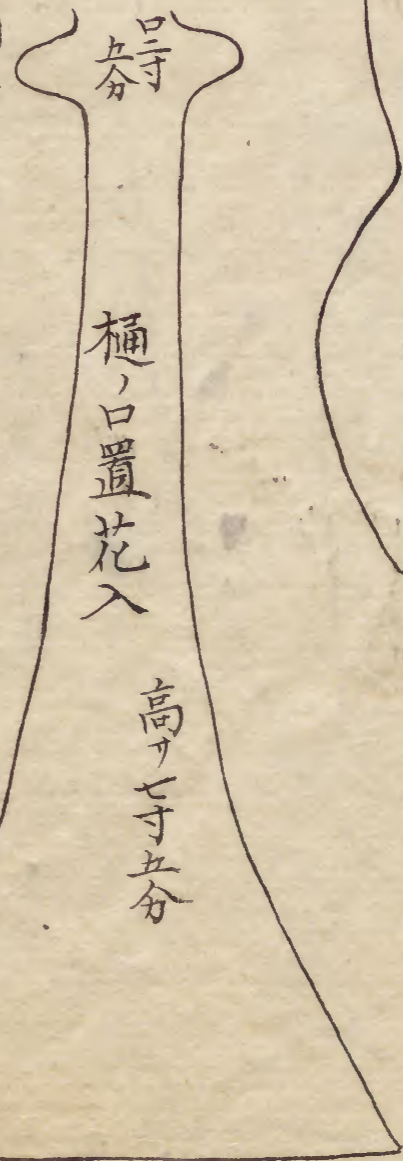 口二寸
五分
樋ノ口置花入
高サ七寸五分